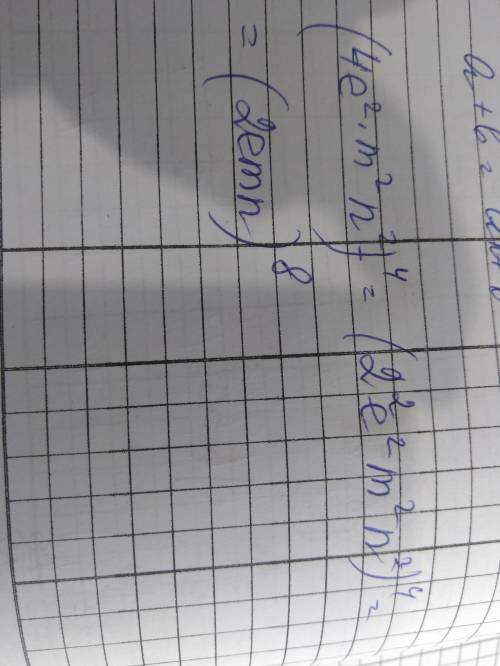 a + b =
(4e²·m²n²)⁴ = (2²e²m²n²)⁴ =
= (2emn)⁸